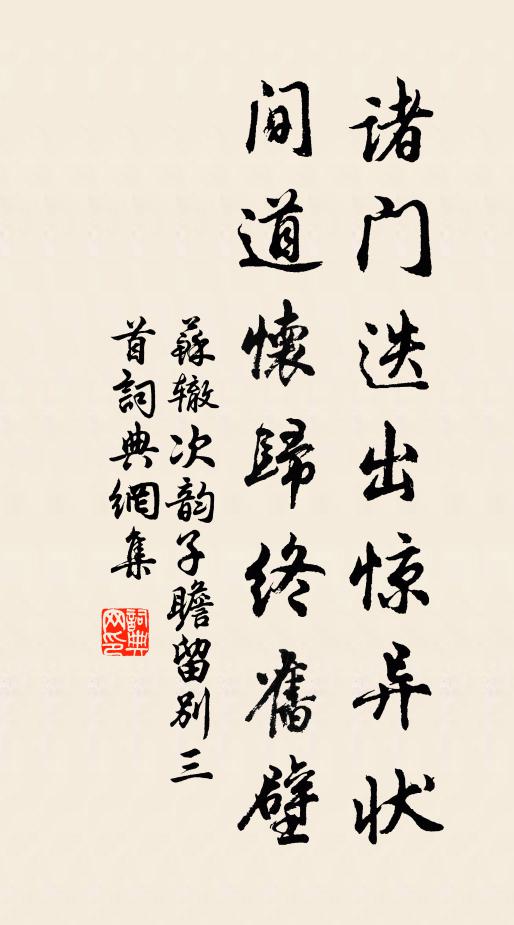 诸门迭出惊异状
间道懷歸终舊壁
蘇辙次韵子瞻留别三
首詞典網集
詞典网印